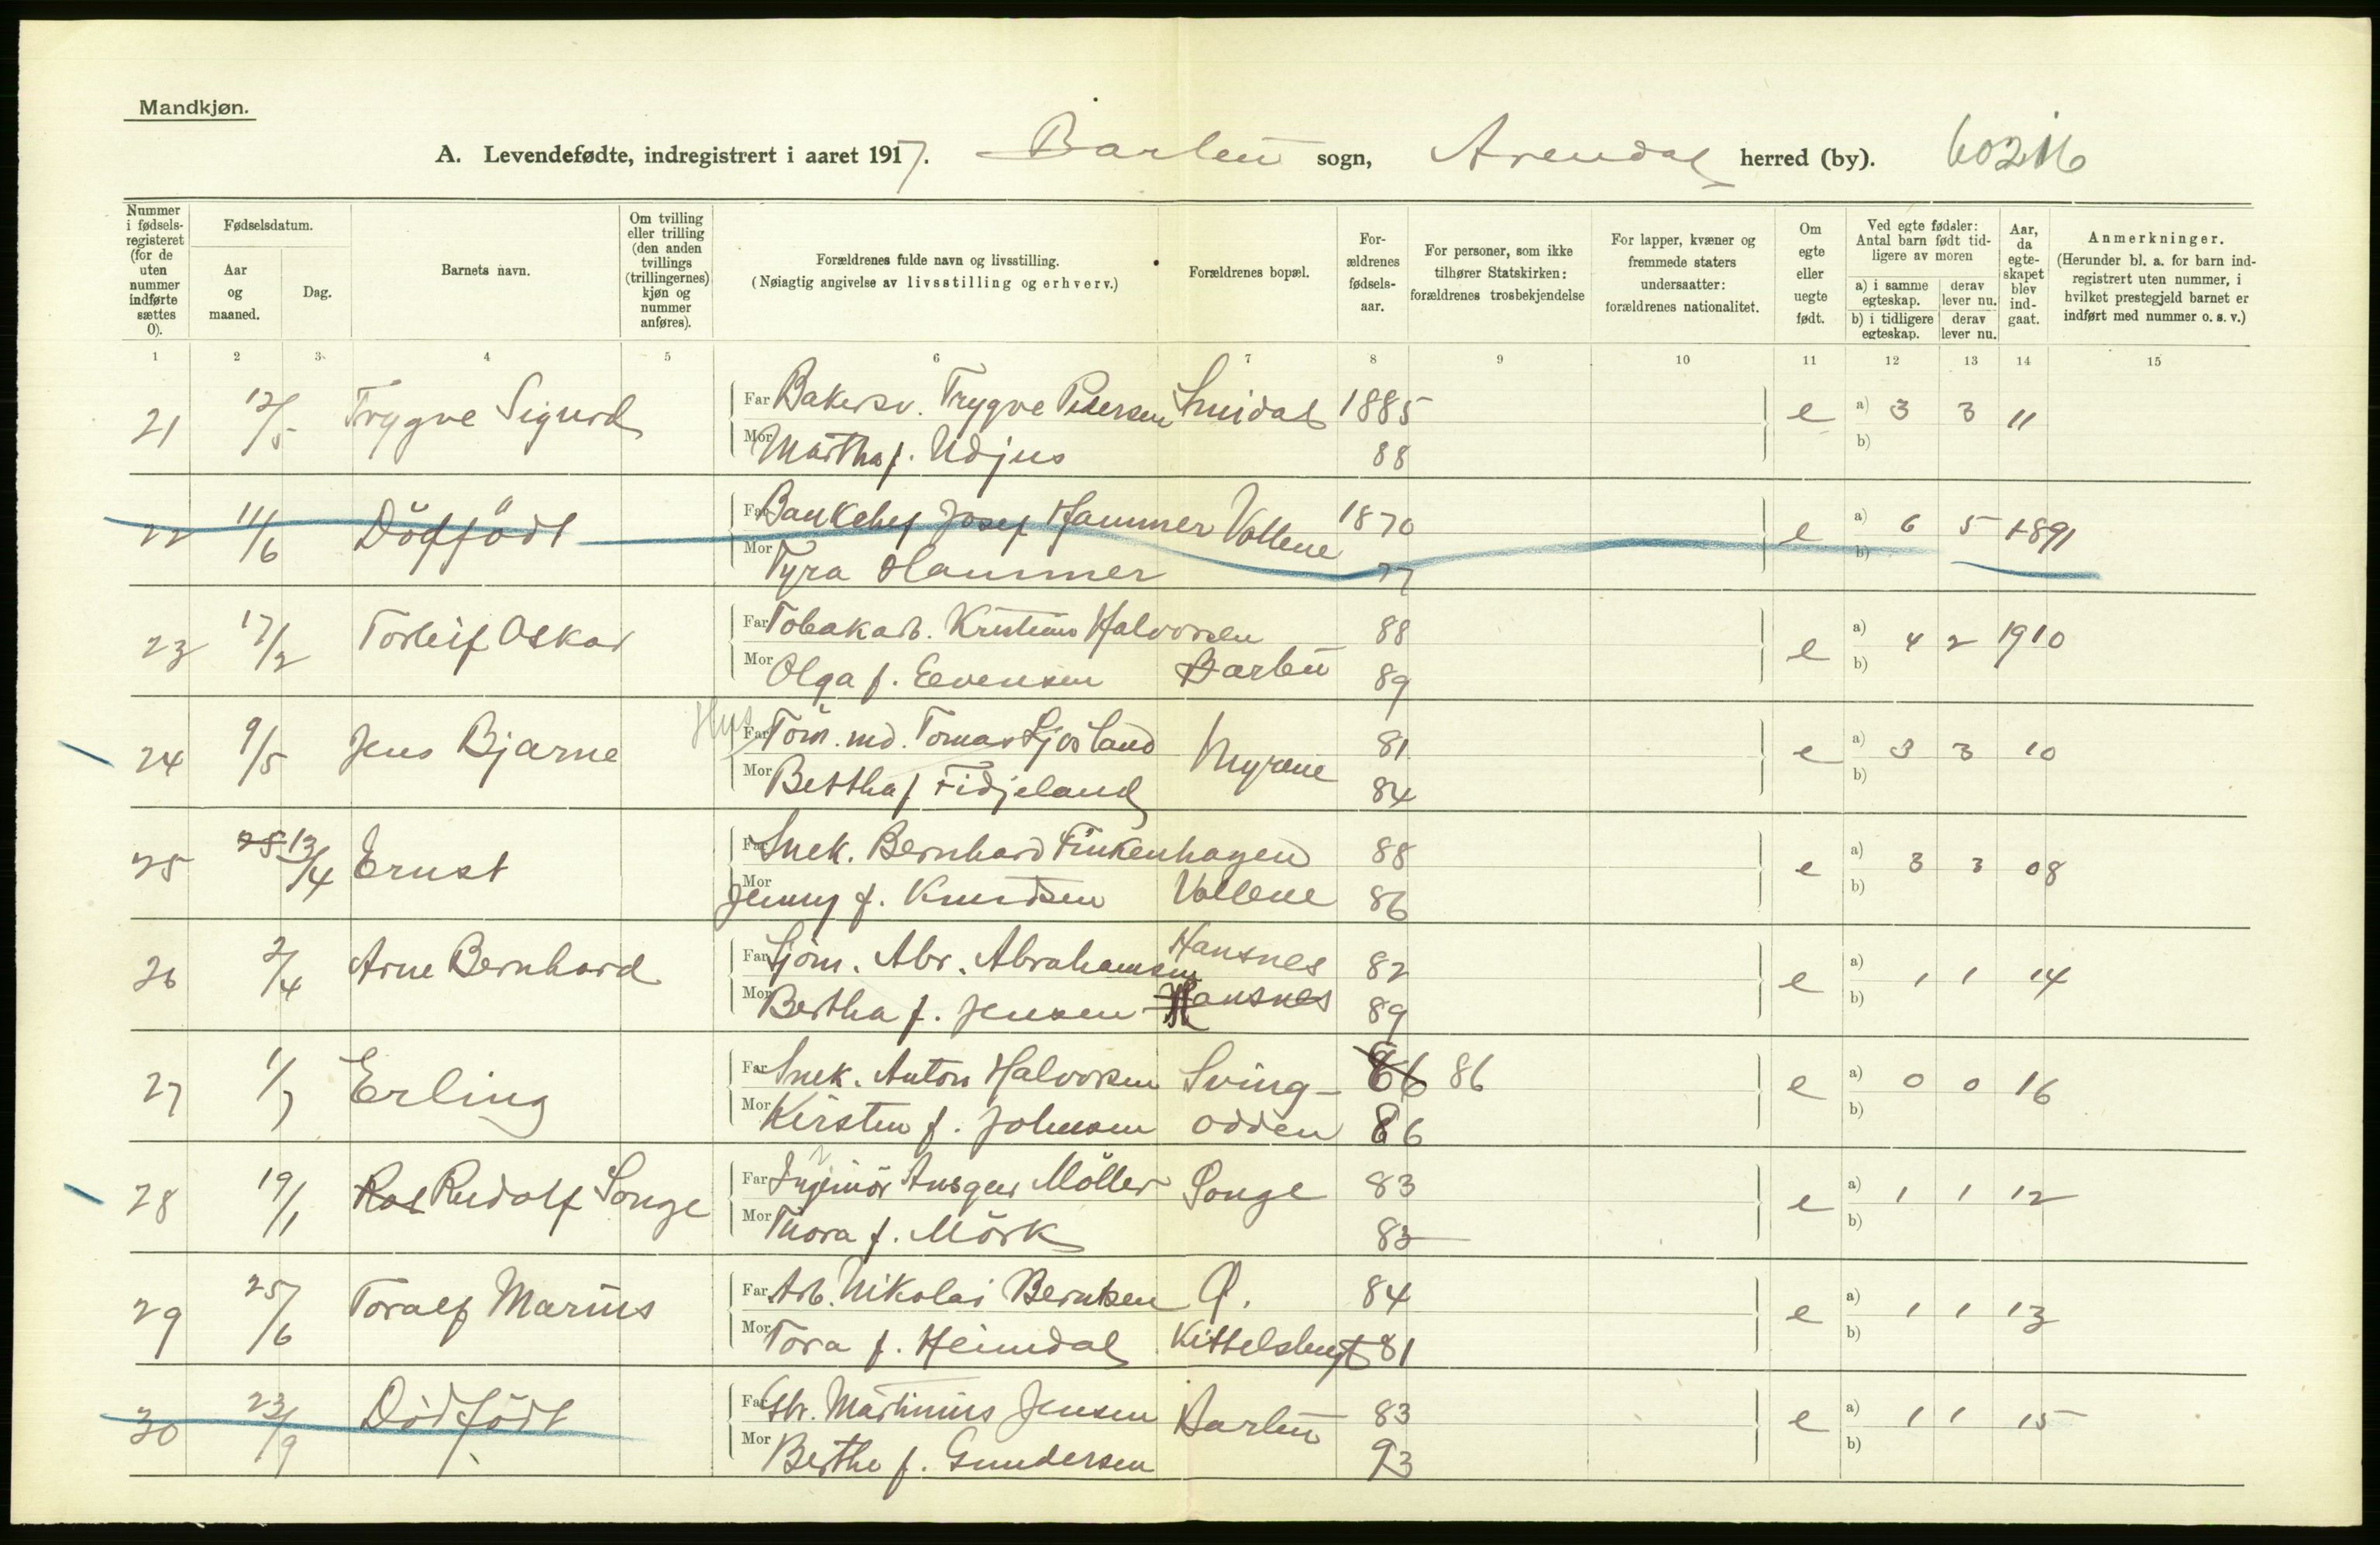 Mandkjøn.
A. Levendefødte, indregistrert i aaret 1917. Barbu sogn, Arendal herred (by). 60216
Nummer i fødselsregisteret (for de uten nummer indførte sættes 0).
Fødselsdatum.
Aar og maaned.
Dag.
Barnets navn.
Om tvilling eller trilling (den anden tvillings (trillingernes) kjøn og nummer anføres).
Forældrenes fulde navn og livsstilling.
(Nøiagtig angivelse av livsstilling og erhverv.)
Forældrenes bopæl.
Forældrenes fødselsaar.
For personer, som ikke tilhører Statskirken: forældrenes trosbekjendelse
For lapper, kvæner og fremmede staters undersaatter: forældrenes nationalitet.
Om egte eller uegte født.
Ved egte fødsler: Antal barn født tidligere av moren
a) i samme egteskap.
derav lever nu.
b) i tidligere egteskap.
derav lever nu.
Aar, da egteskapet blev indgaat.
Anmerkninger.
(Herunder bl. a. for barn indregistrert uten nummer, i hvilket prestegjeld barnet er indført med nummer o. s. v.)
1 2 3 4 5 6 7 8 9 10 11 12 13 14 15
21 12/5 Trygve Sigurd Far Bakersv. Trygve Pedersen 1885 e a) 3 3 11
Mor Martha f. Udjus 88 b)
22 11/6 Dödfödt Far Bankchef Josef Hammer Vollene 1870 e a) 6 5 1891
Mor Tyra Hammer 77 b)
23 17/2 Torleif Oskar Far Tobakarb. Kristians Halvorsen 88 e a) 4 2 1910
Mor Olga f. Evensen Barbu 89 b)
24 9/5 Jens Bjarne Hus Far Töm.md. Tomas Ljosland Myrene 81 e a) 3 3 10
Mor Bertha f Fidjeland 84 b)
25 28 13/4 Ernst Far Snek. Bernhard Finkenhagen 88 e a) 3 3 08
Mor Jenny f. Knudsen Vollene 86 b)
26 2/4 Arne Bernhard Far Sjöm. Abr. Abrahamsen Hansnes 82 e a) 1 1 14
Mor Bertha f. Jensen Hansnes 89 b)
27 1/7 Erling Far Snek. Anton Halvorsen Sving- 66 86 e a) 0 0 16
Mor Kirsten f. Johnsen odden 86 b)
28 19/1 Rol Rudolf Songe Far Ingeniör Ansgar Möller Songe 83 e a) 1 1 12
Mor Thora f. Mörk 83 b)
29 25/6 Toralf Marius Far Arb. Nikolai Berntsen Ö. 84 e a) 1 1 13
Mor Tora f. Heimdal Kittelsbugt 81 b)
30 23/9 Dödfödt Far Martinius Jensen Barbu 83 e a) 1 1 15
Mor Berthe f. Gundersen 93 b)